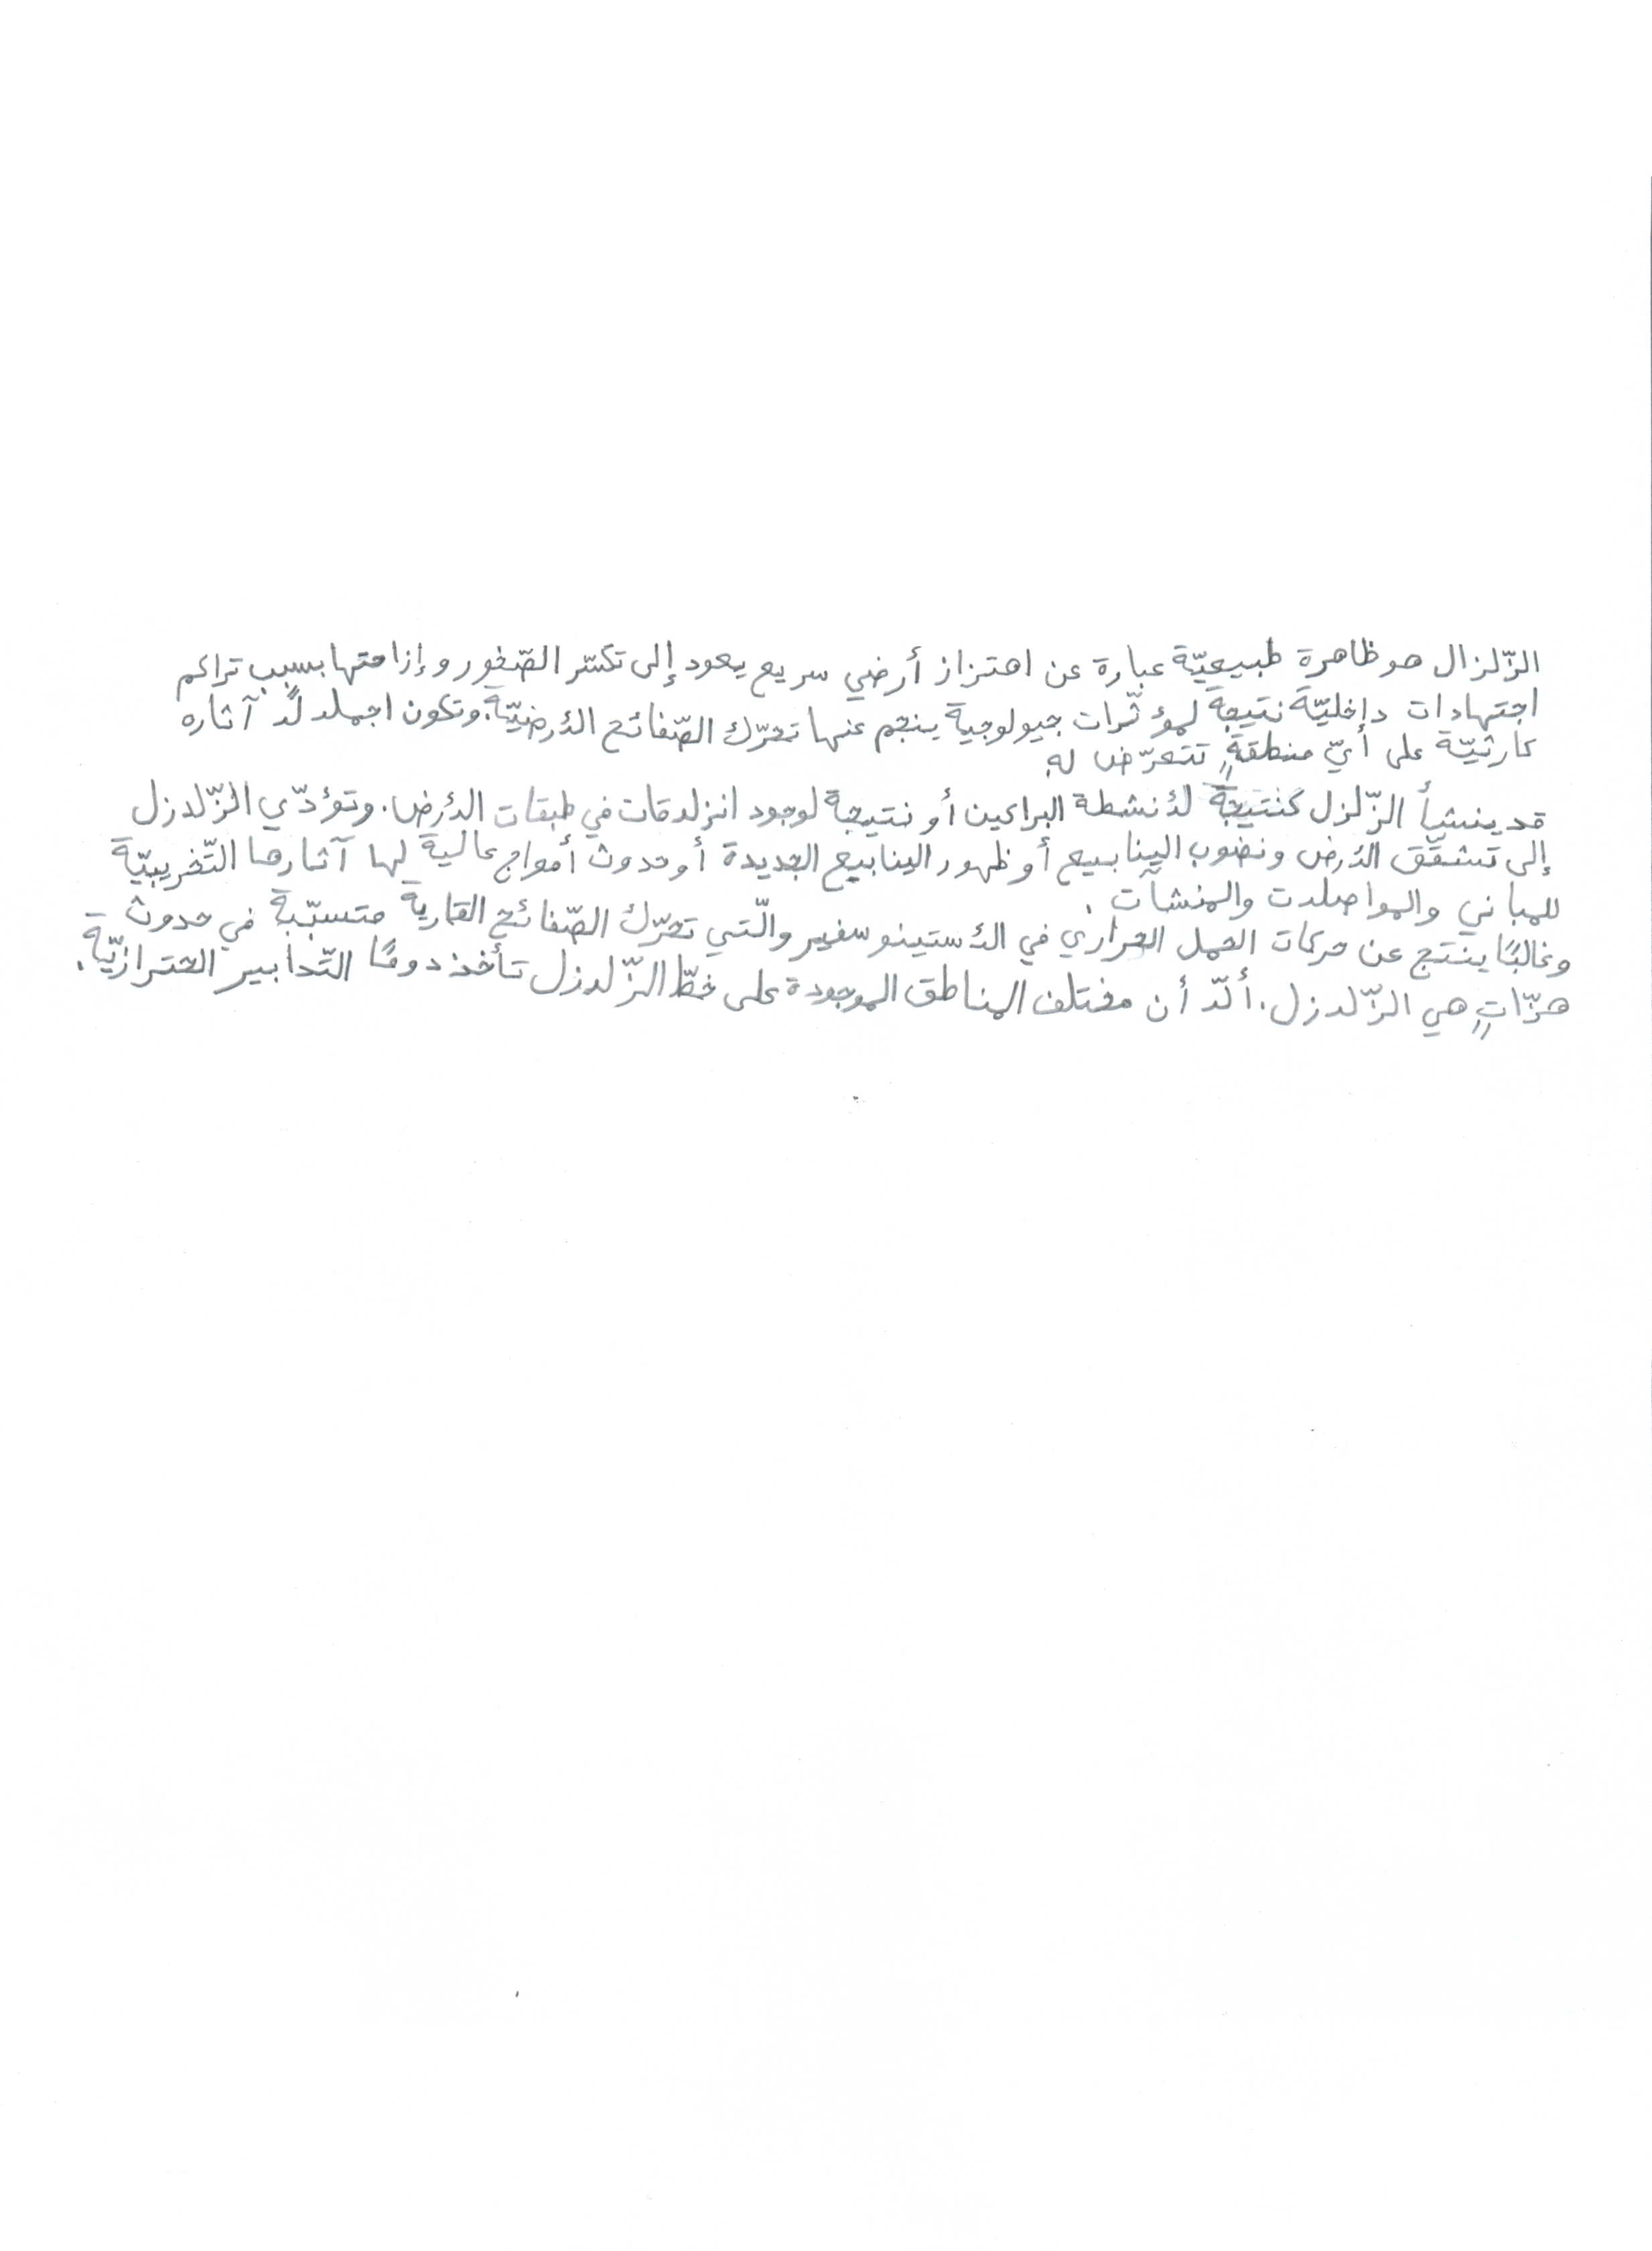 الزّلزال هو ظاهرة طبيعيّة عبارة عن اهتزاز أرضي سريع يعود إلى تكسّر الصّخور وإزاحتها بسبب تراكم
اجتهادات داخليّة نتيجة لمؤثّرات جيولوجية ينجم عنها تحرّك الصّفائح الأرضيّة. وتكون اجملالًا آثاره
كارثيّة على أيّ منطقةٍ تتعرّض له.
قد ينشأ الزّلزل كنتيجةً لأنشطة البراكين أو نتيجة لوجود انزلاقات في طبقات الأرض. وتؤدّي الزّلازل
إلى تشقّق الأرض ونضوب الينابيع أو ظهور الينابيع الجديدة أو حدوث أمواج عالية لها آثارها التّخريبيّة
للمباني والمواصلات والمنشآت.
وغالبًا ينتج عن حركات الحمل الحراري في الأستينوسفير والّتي تحرّك الصّفائح القارية متسبّبة في حدوث
هزّاتٍ هي الزّلازل. ألّا أن مختلف المناطق الموجودة على خطّ الزّلازل تأخذ دومًا التّدابير الحترازيّة.